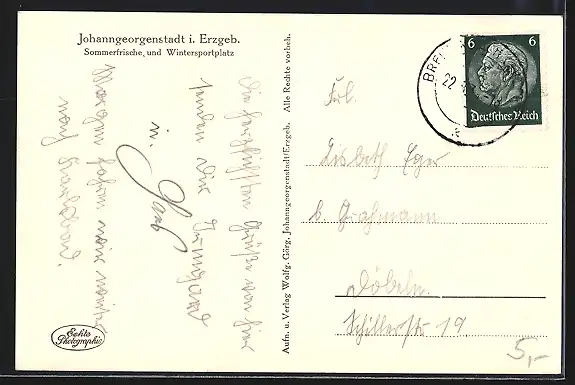 Johanngeorgenstadt i. Erzgeb.
Sommerfrische und Wintersportplatz
Die herzlichsten Grüße von hier
senden Dir Irmgard
u.
Morgen fahren wir weiter
nach Karlsbad.
Echte
Photographie
Aufn. u. Verlag Wolfg. Görg, Johanngeorgenstadt/Erzgeb. Alle Rechte vorbeh.
BRE
22
6 6
Deutsches Reich
Frl.
Lisbeth Eger
b. Grahmann
Döbeln.
Schillerstr 19
5,-